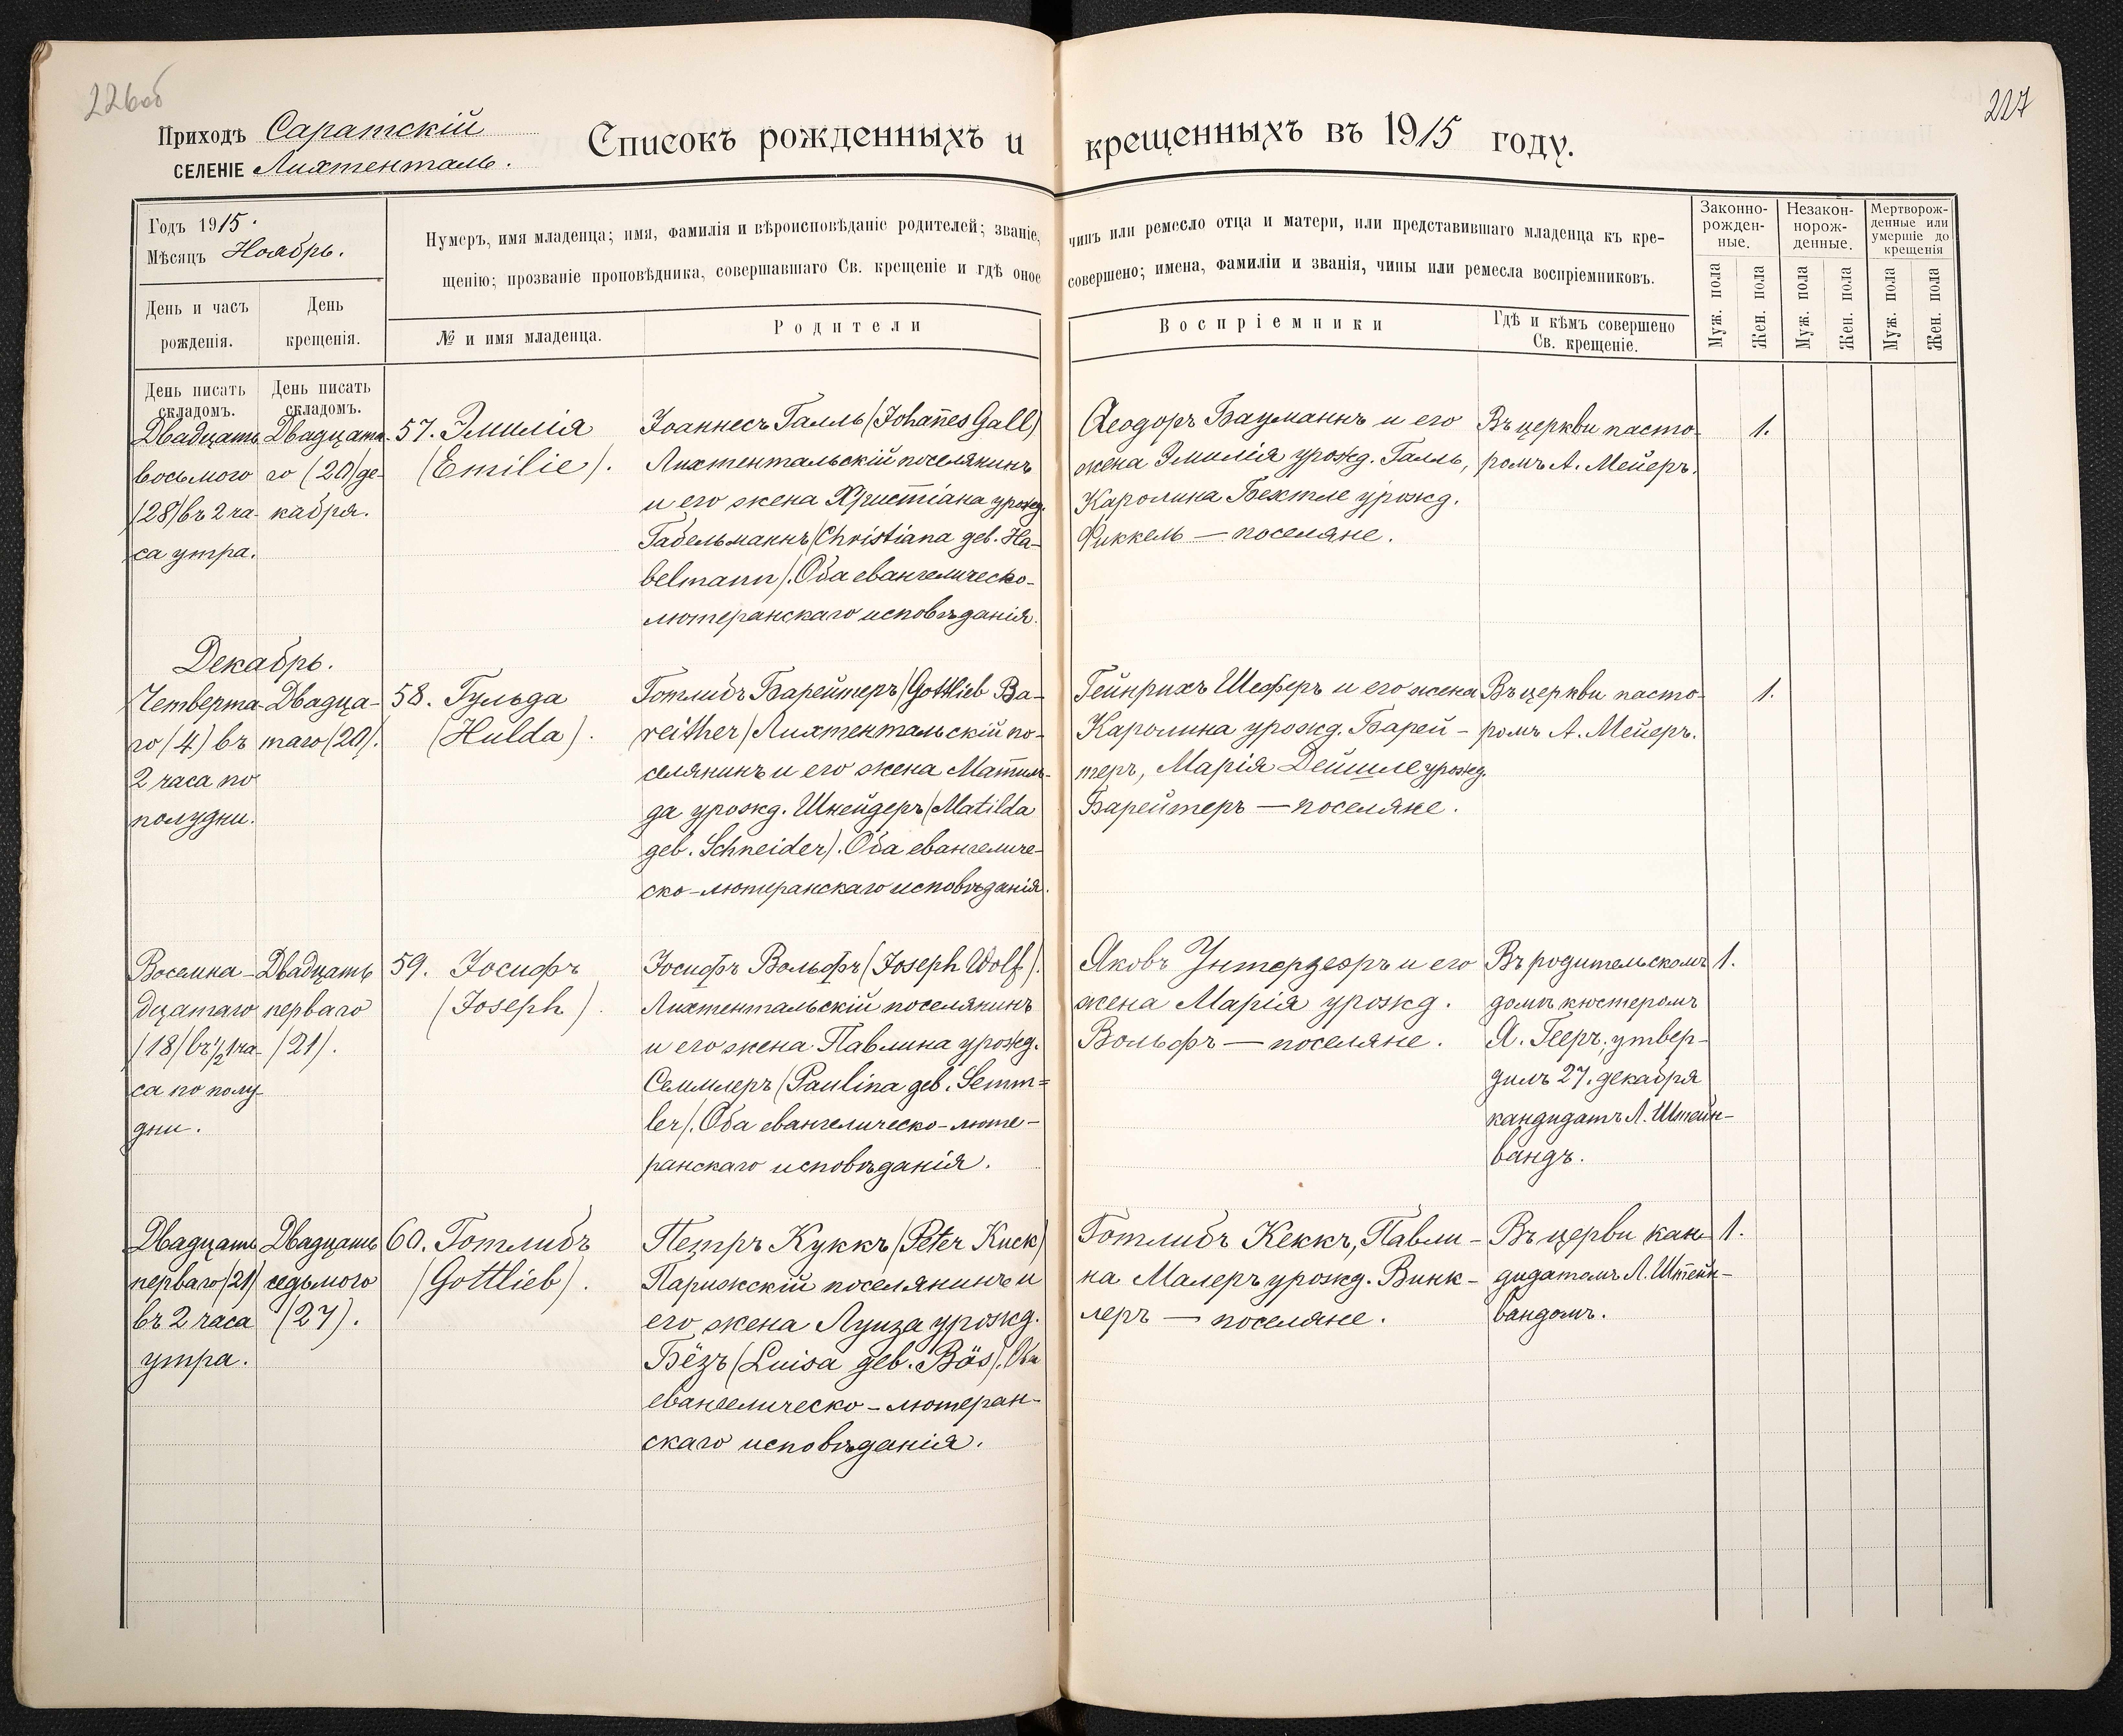 226об
227
Приходъ Саратскій
СЕЛЕНІЕ Лихтенталь.
Списокъ рожденныхъ и крещенныхъ въ 1915 году.
Годъ 1915.
Мѣсяцъ Ноябрь.
День и часъ рожденія.
День крещенія.
Нумеръ, имя младенца; имя, фамилія и вѣроисповѣданіе родителей; званіе, чинъ или ремесло отца и матери, или представившаго младенца къ кре-
щенію; прозваніе проповѣдника, совершавшаго Св. крещеніе и гдѣ оное совершено; имена, фамиліи и званія, чины или ремесла воспріемниковъ.
№ и имя младенца.
Родители
Воспріемники
Гдѣ и кѣмъ совершено
Св. крещеніе.
Законно-
рожден-
ные.
Незакон-
норож-
денные.
Мертворож-
денные или
умершіе до
крещенія
Муж. пола
Жен. пола
Муж. пола
Жен. пола
Муж. пола
Жен. пола
День писать
складомъ.
День писать
складомъ.
Двадцать
восьмого
(28) въ 2 ча-
са утра.
Двадцата-
го (20) де-
кабря.
57. Эмилія
(Emilie).
Іоаннесъ Галль (Johañes Gall)
Лихтентальскій поселянинъ
и его жена Христіана урожд.
Габельманнъ (Christiana geb. Ha-
belmann). Оба евангелическо-
лютеранскаго исповѣданія.
Ѳеодоръ Бауманнъ и его
жена Эмилія урожд. Галль,
Каролина Бехтле урожд.
Фиккель — поселяне.
Въ церкви пасто-
ромъ А. Мейеръ.
1.
Декабрь.
Четверта-
го (4) въ
2 часа по
полудни.
Двадца-
таго (20).
58. Гульда
(Hulda).
Готлибъ Барейтеръ (Gottlieb Ba-
reither) Лихтентальскій по-
селянинъ и его жена Матиль-
да урожд. Шнейдеръ (Matilda
geb. Schneider). Оба евангеличе-
ско-лютеранскаго исповѣданія.
Гейнрихъ Шеферъ и его жена
Каролина урожд. Барей-
теръ, Марія Дейшле урожд.
Барейтеръ — поселяне.
Въ церкви пасто-
ромъ А. Мейеръ.
1.
Восемна-
дцатаго
(18) въ 1/2 1 ча-
са по полу-
дни.
Двадцать
перваго
(21).
59. Іосифъ
(Joseph).
Іосифъ Вольфъ (Joseph Wolf).
Лихтентальскій поселянинъ
и его жена Павлина урожд.
Семмлеръ (Paulina geb. Semm=
ler). Оба евангелическо-люте-
ранскаго исповѣданія.
Яковъ и его
жена Марія урожд.
Вольфъ — поселяне.
Въ родительскомъ
домѣ кюстеромъ
Я. Гееръ, утвер-
дилъ 27. декабря
кандидатъ Л. Штейн-
вандъ.
1.
Двадцать
перваго (21)
въ 2 часа
утра.
Двадцать
седьмого
(27).
60. Готлибъ
(Gottlieb).
Петръ Куккъ (Peter Kuck)
Парижскій поселянинъ и
его жена Луиза урожд.
Бёзъ (Luisa geb. Bös). Оба
евангелическо-лютеран-
скаго исповѣданія.
Готлибъ Кеккъ, Павли-
на Малеръ урожд. Винк-
леръ — поселяне.
Въ церви кан-
дидатомъ Л. Штейн-
вандомъ.
1.